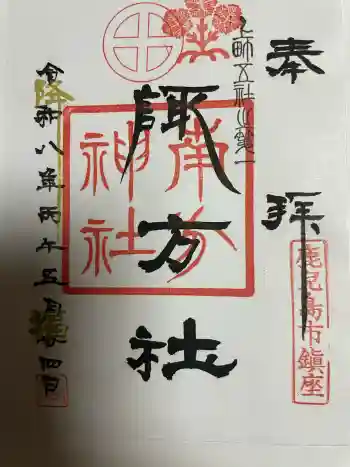 奉拝
鹿児島市鎮座
上町五社之第一
諏方社
南方神社
令和八年丙午五月四日